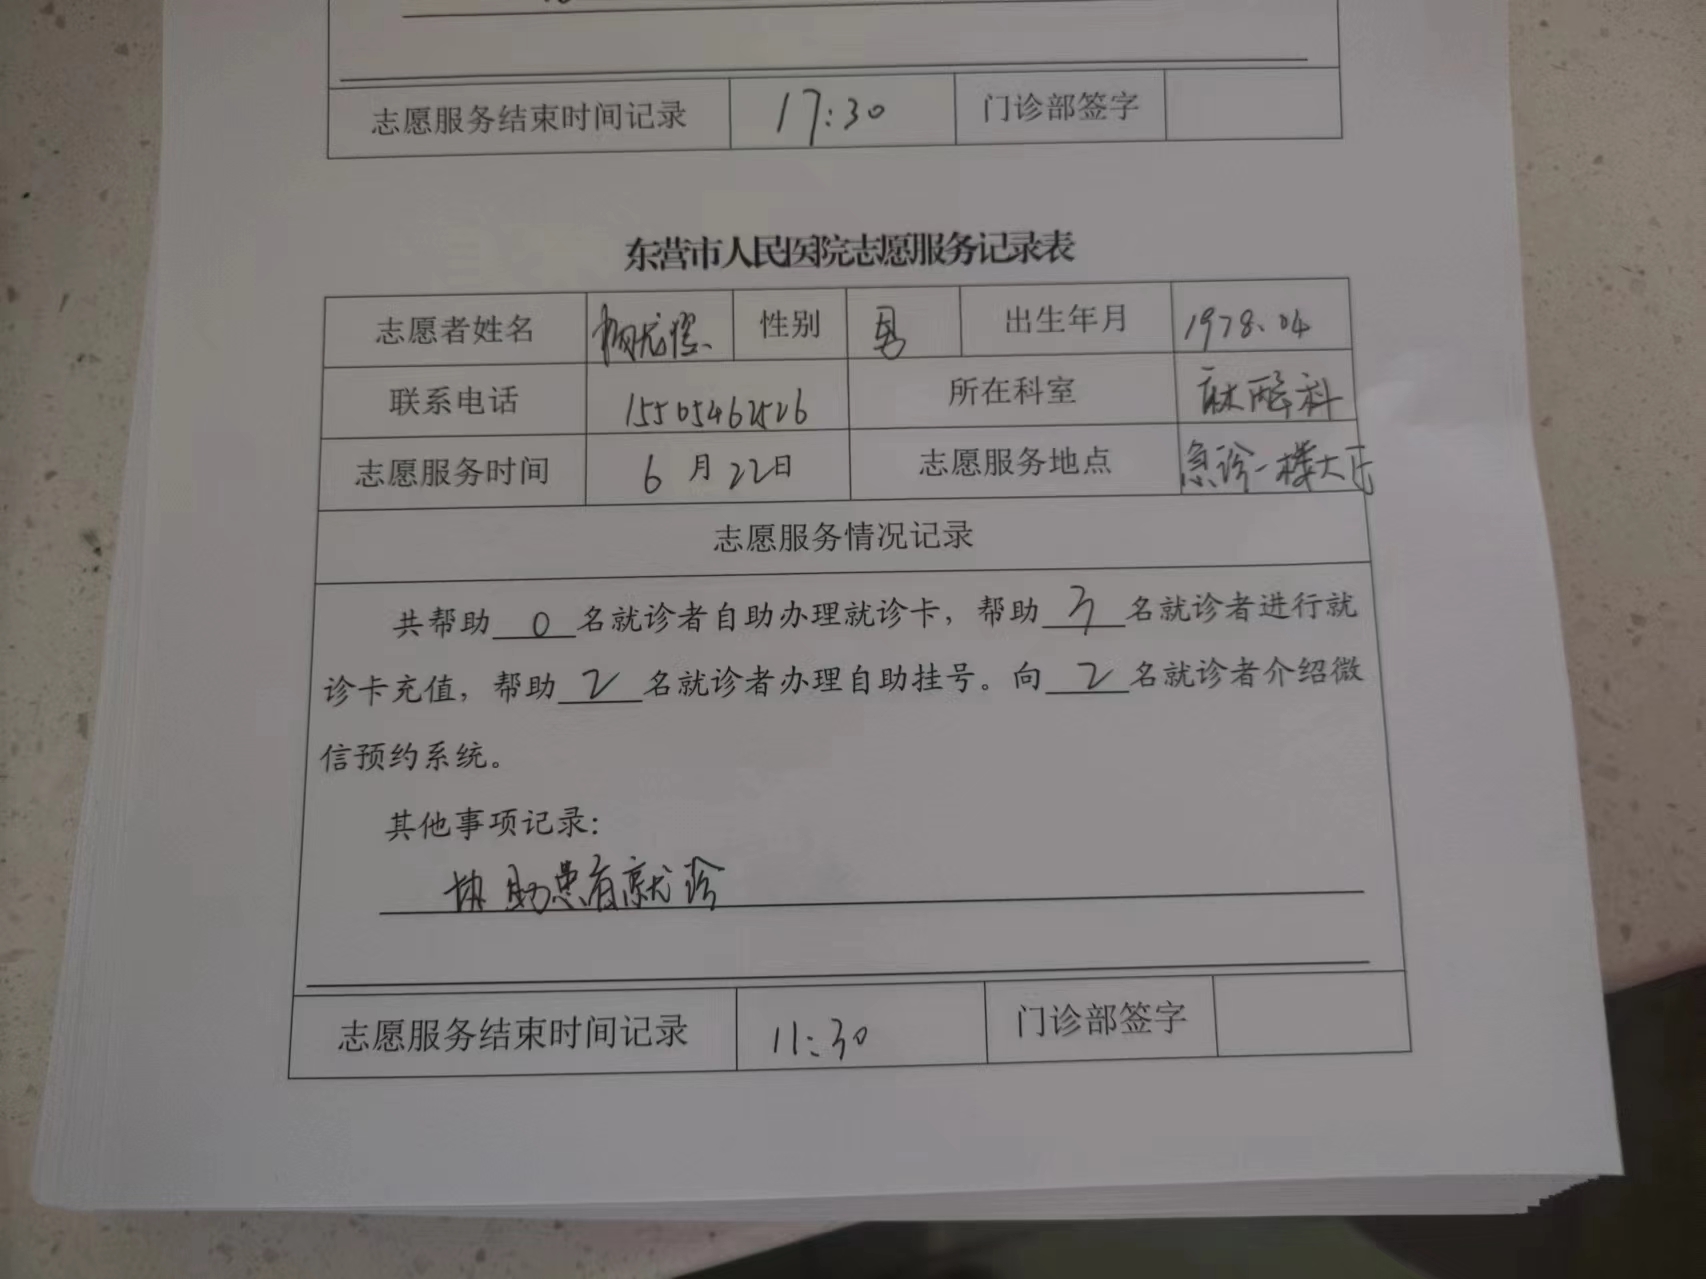 志愿服务结束时间记录 17:30 门诊部签字
东营市人民医院志愿服务记录表
志愿者姓名 性别 男 出生年月 1978.04
联系电话 15505462526 所在科室 麻醉科
志愿服务时间 6月22日 志愿服务地点 急诊一楼大厅
志愿服务情况记录
共帮助 0 名就诊者自助办理就诊卡，帮助 3 名就诊者进行就
诊卡充值，帮助 2 名就诊者办理自助挂号。向 2 名就诊者介绍微
信预约系统。
其他事项记录：
协助患者就诊
志愿服务结束时间记录 11:30 门诊部签字